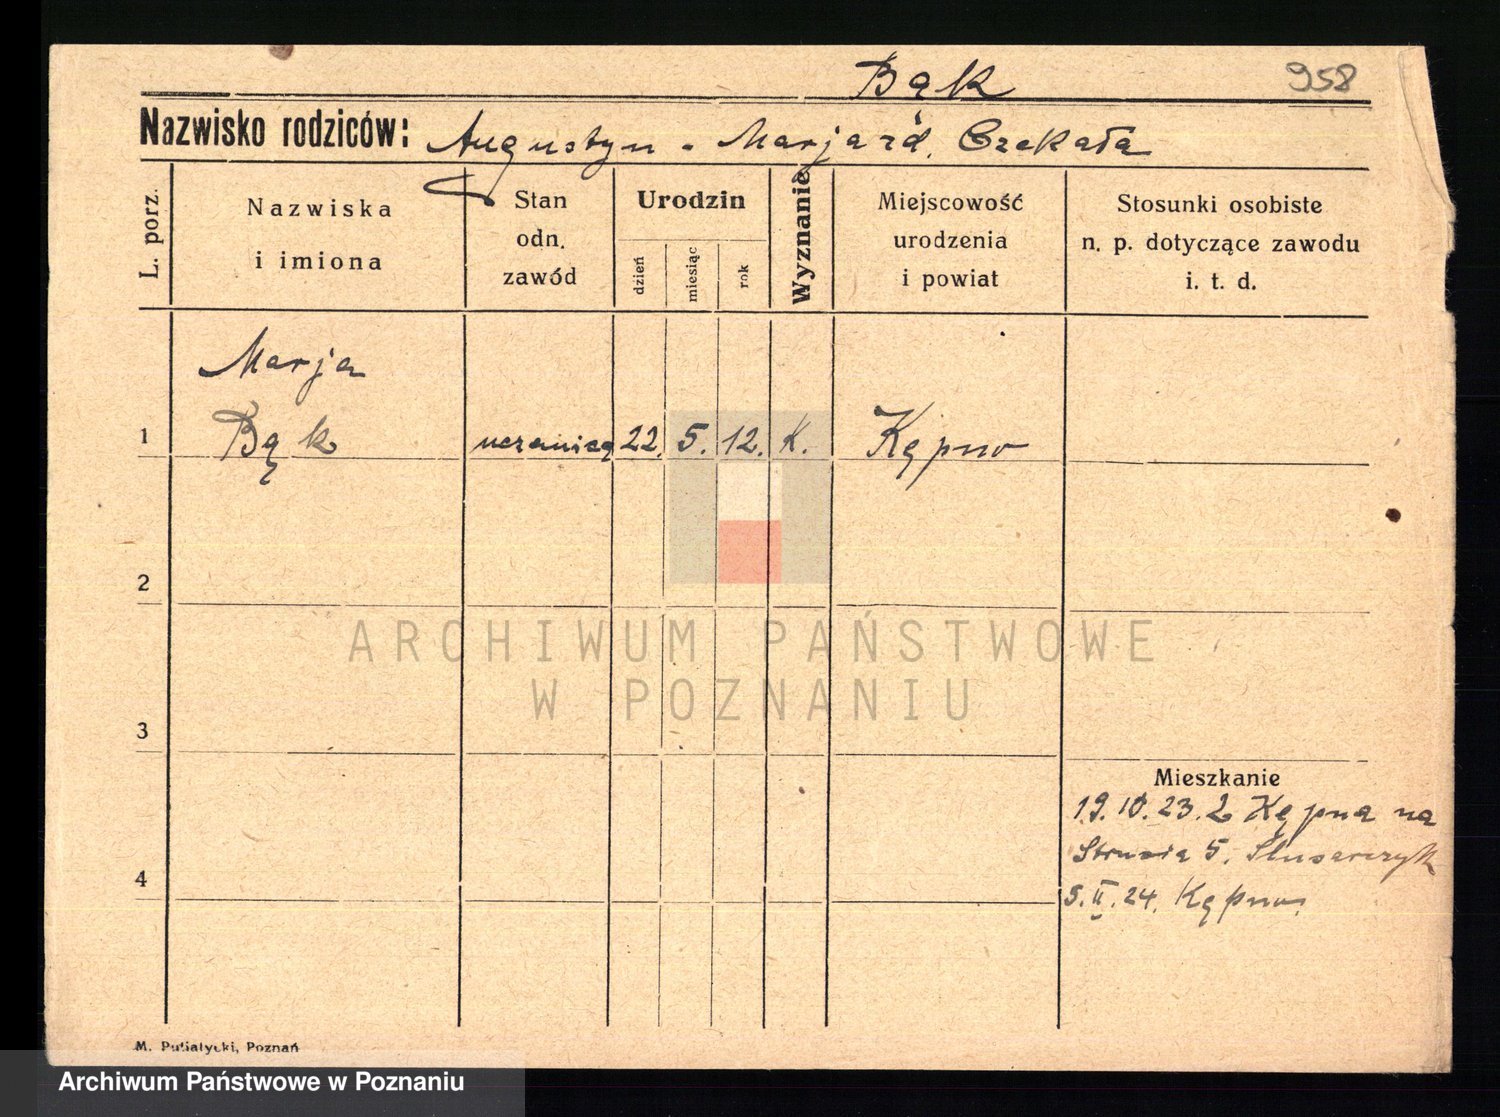 Bąk 958
Nazwisko rodziców: Augustyn - Marja zd. Czekała
L. porz.
Nazwiska
i imiona
Stan
odn.
zawód
Urodzin
dzień
miesiąc
rok
Wyznanie
Miejscowość
urodzenia
i powiat
Stosunki osobiste
n. p. dotyczące zawodu
i. t. d.
Marja
1 Bąk uczenica 22. 5. 12. K. Kępno
2
ARCHIWUM PAŃSTWOWE
W POZNANIU
3
Mieszkanie
19. 10. 23. z Kępna na
Strusia 5. Slusarczyk
4
5. II. 24. Kępno.
M. Putiatycki, Poznań
Archiwum Państwowe w Poznaniu